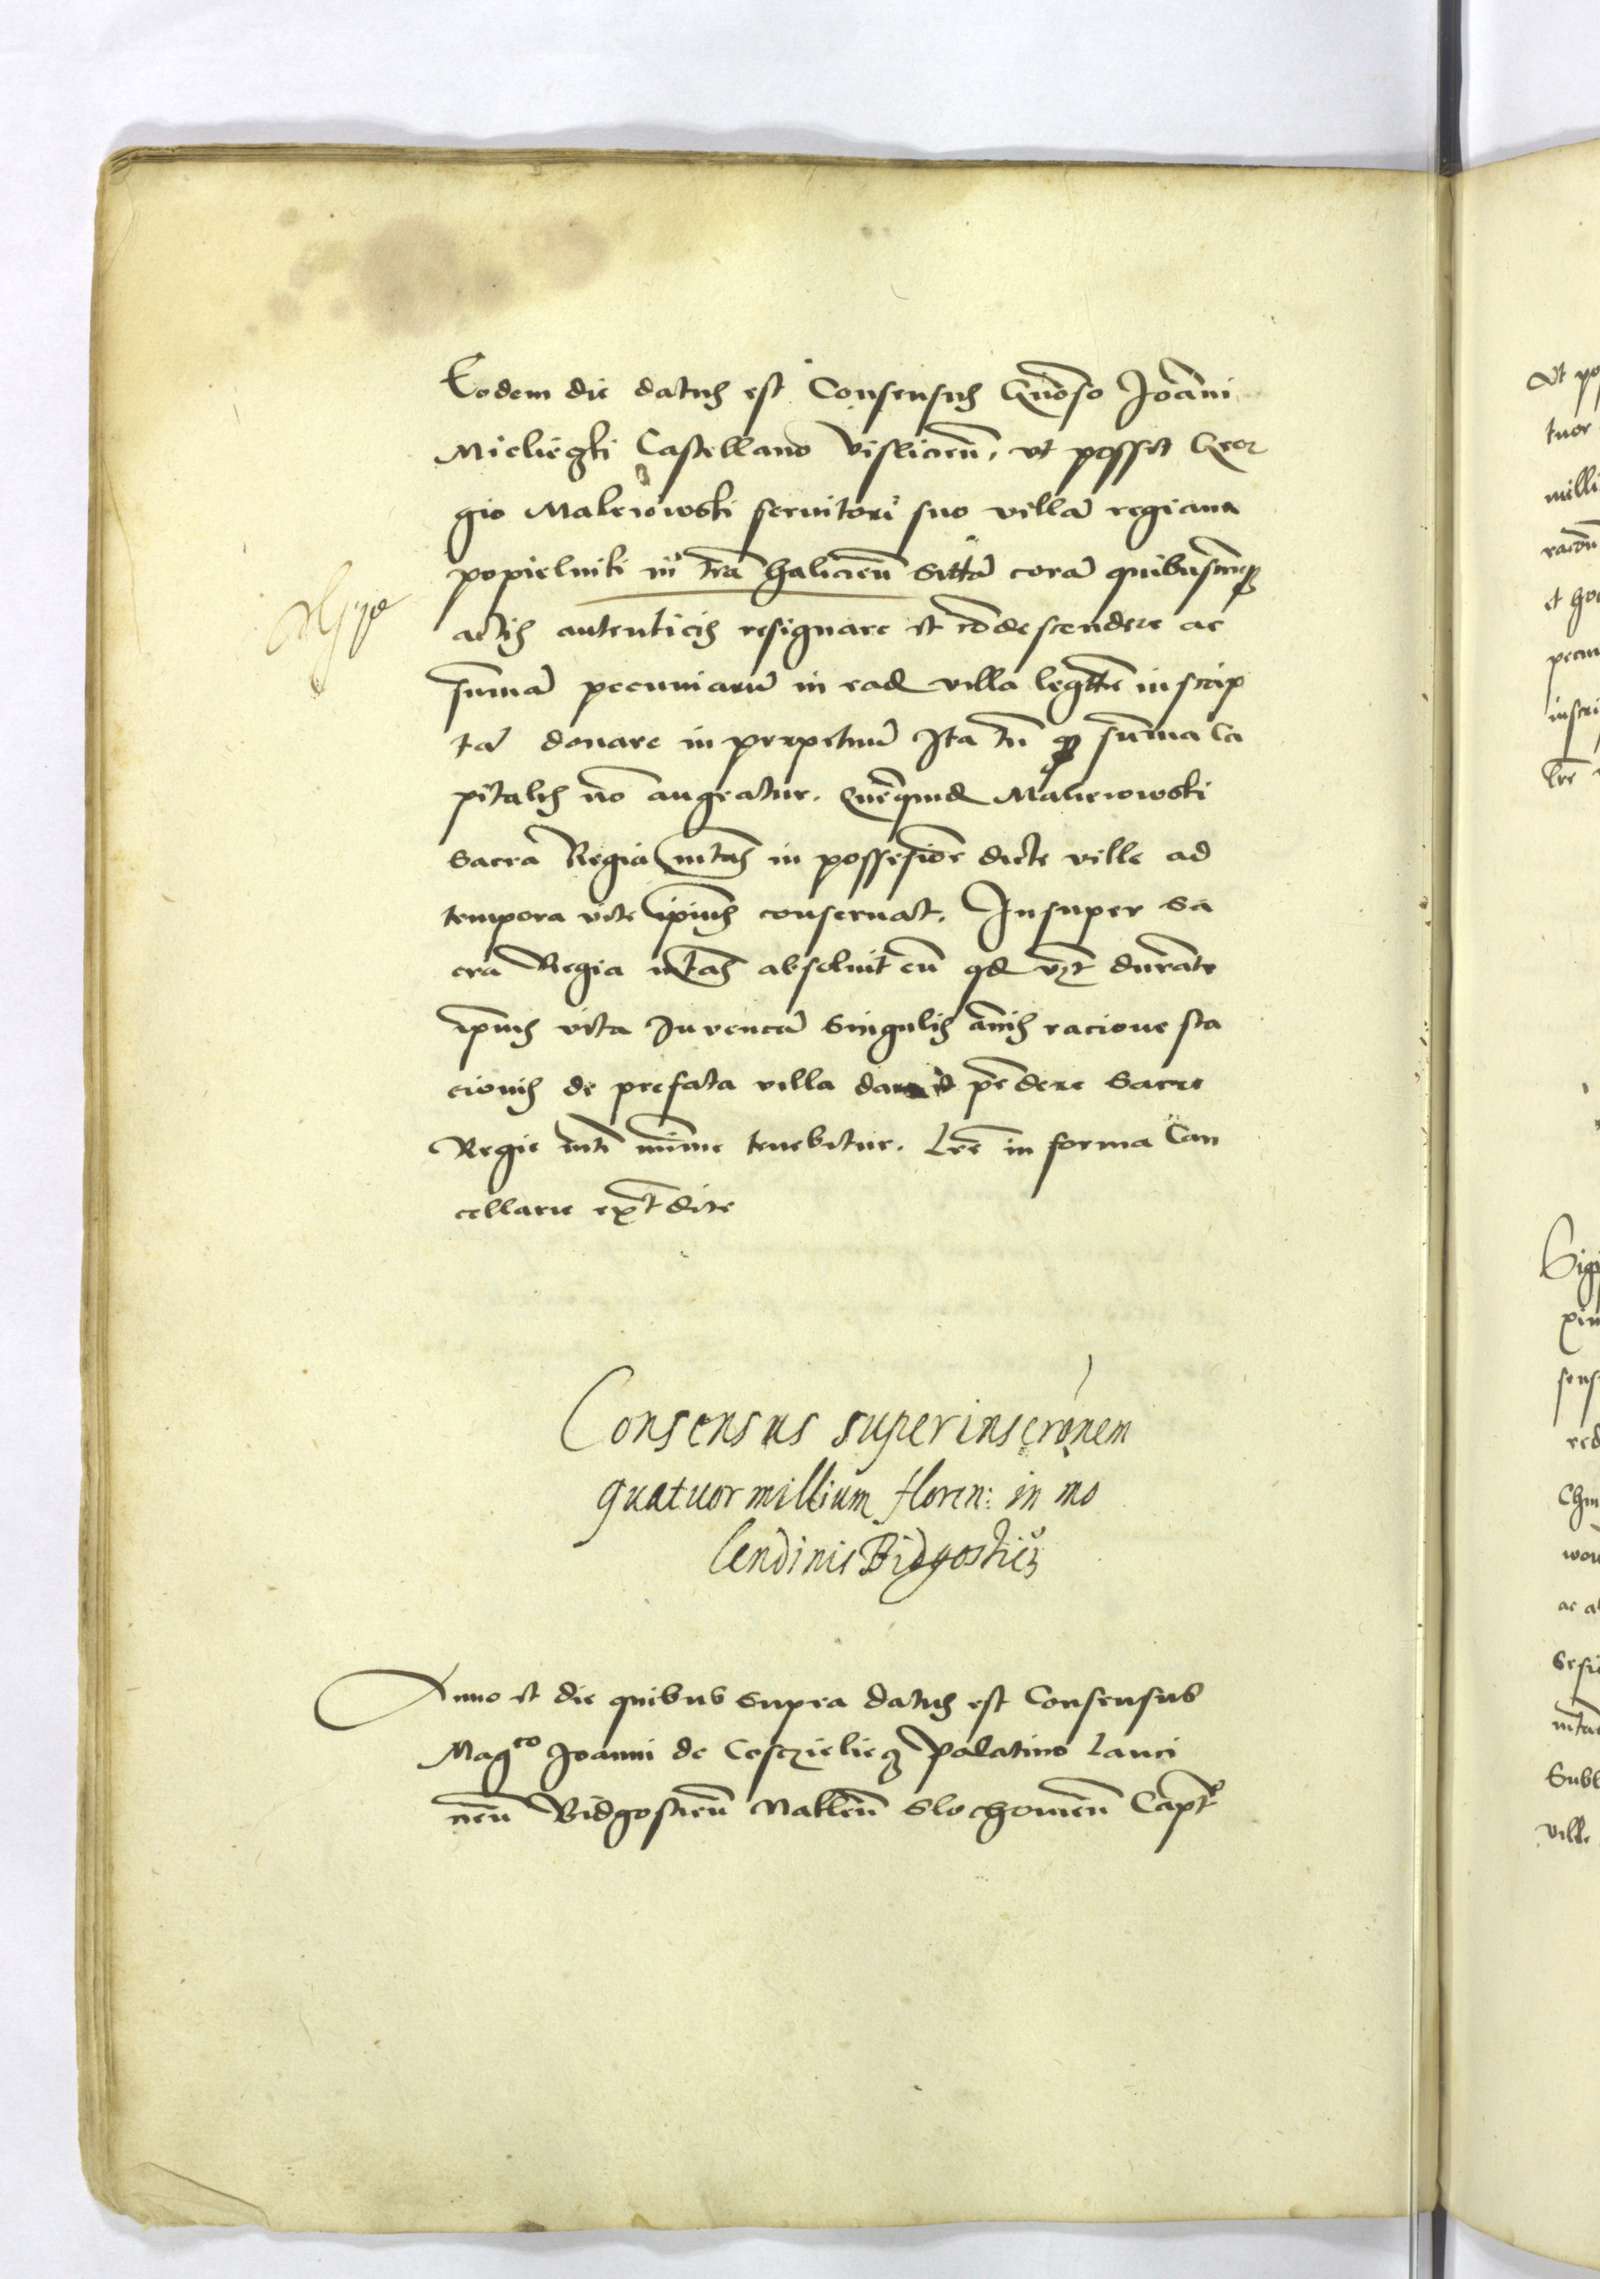 Eodem die datus est Consensus Gnoso Joanni
Mieliegski Castellano Vislicien, vt posset Geor
gio Malewowski seruitori suo villa regiam
popielniki in tra halicien sitta cora quibuscunq
actis autenticis resignare et codescendere ac
summa pecuniaru in ead villa legttie inscrip
ta donare in perpetuu Ita tn q summa ca
pitalis no augeatur. Queqnd Maliewowski
Sacra Regia mtas in possesione dicte ville ad
tempora vite ipius conseruat. Insuper sa
cra Regia mtas absoluit eu qd durate
ipius vita Juvenca singulis annis racione sta
cionis de prefata villa dare pendere Sacre
Regie mti mime tenebitur. Lre in forma Can
cellarie expedite
Consensus super inscronem
quatuor millium floren: in mo
lendinis Bidgostien
Anno et die quibus supra datus est Consensus
Magco Joanni de Cosczieliecz Palatino Lanci
cien Bidgostien Naklen Slochowien Capto